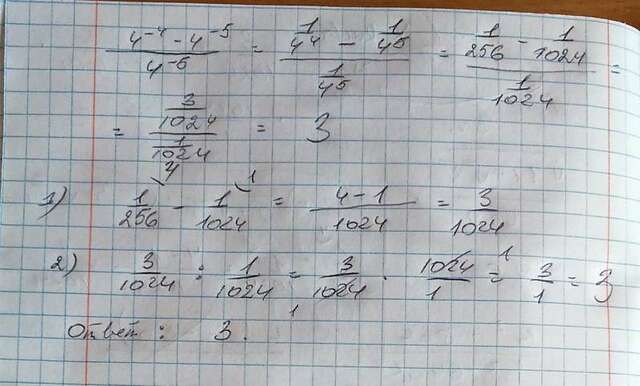 (4⁻⁴ - 4⁻⁵)/4⁻⁵ = (1/4⁴ - 1/4⁵)/(1/4⁵) = (1/256 - 1/1024)/(1/1024) =
= (3/1024)/(1/1024) = 3
1) 1/256 ⁴ - 1/1024 ¹ = (4-1)/1024 = 3/1024
2) 3/1024 : 1/1024 = 3/1024 · 1024/1 = 3/1 = 3
Ответ : 3.